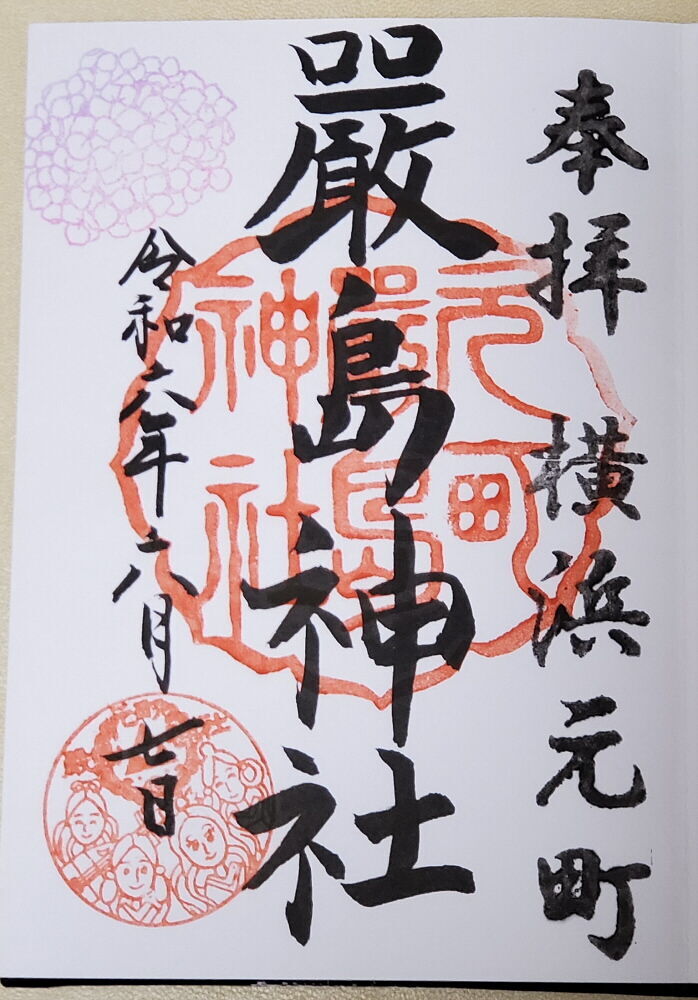 奉拝　横浜元町
嚴島神社
令和六年六月七日
元町
嚴島
神社